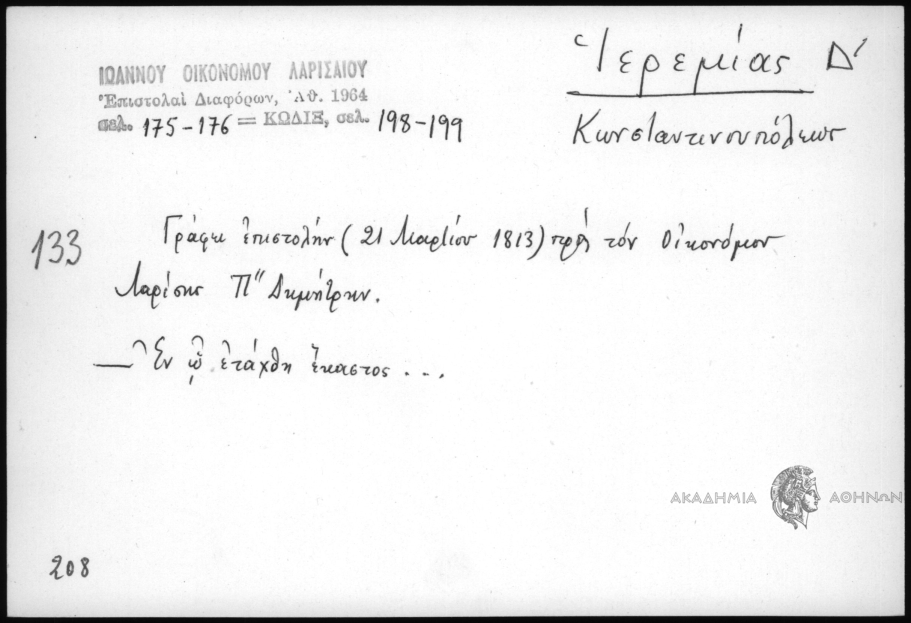 ΙΩΑΝΝΟΥ ΟΙΚΟΝΟΜΟΥ ΛΑΡΙΣΑΙΟΥ
Ἐπιστολαὶ Διαφόρων, Ἀθ. 1964
σελ. 175-176 = ΚΩΔΙΞ, σελ. 198-199
Ἱερεμίας Δ'
Κωνσταντινουπόλεως
133
Γράφει ἐπιστολήν (21 Μαρτίου 1813) πρὸς τόν Οἰκονόμον
Λαρίσης Π" Δημήτρην.
— Ἐν ᾧ ἐτάχθη ἕκαστος ...
ΑΚΑΔΗΜΙΑ ΑΘΗΝΩΝ
208